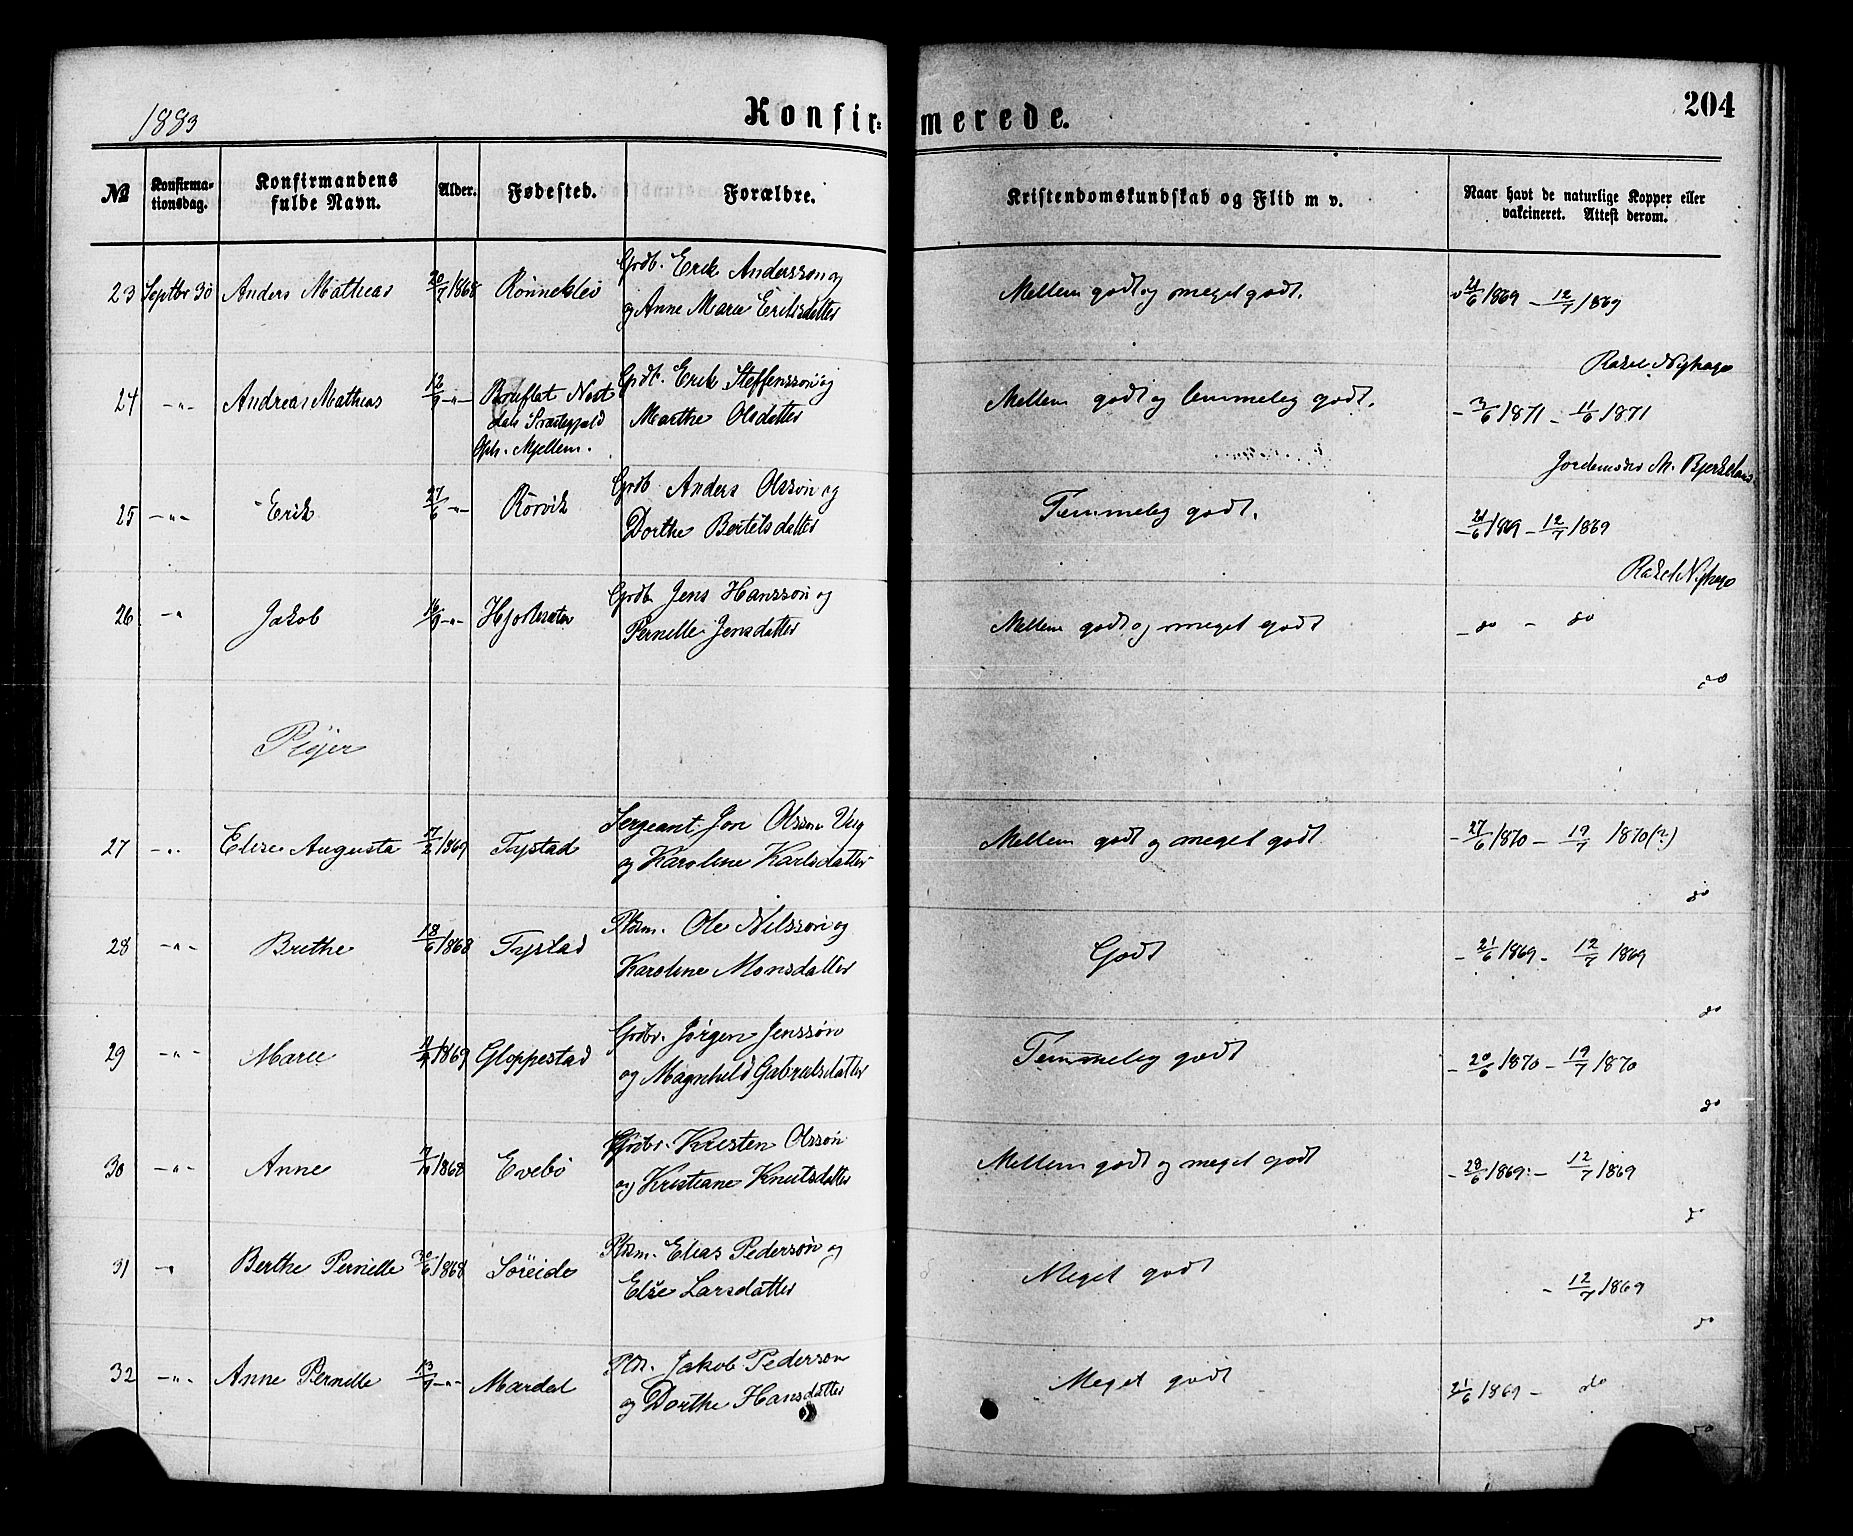 1883
Konfirmerede.
204
№ Konfirmationsdag. Konfirmandens fulde Navn. Alder. Fødested. Forældre. Kristendomskundskab og Flid m v. Naar havt de naturlige Kopper eller vakcineret. Attest derom.
23 Septbr 30 Anders Mathias 20/7 1868 Rønneklev Grdb. Erik Anderssøn og
og Anne Marie Eriksdatter Mellem godt og meget godt. 21/6 1869 - 12/7 1869
Rakel Nyhage
24 -"- Andreas Mathias 12/9 -"- Bruflat Nordt Grdb. Erik Steffenssøn og
dals Præstegjæld Marthe Olsdatter Mellem godt og temmelig godt. - 3/6 1871 - 11/6 1871
Oph. Mjellem.
Jordemoder M. Bjerkeland
25 -"- Erik 27/6 -"- Rørvik Grdb Anders Olssøn og
Dorthe Bertelsdatter Temmelig godt. - 21/6 1869 - 12/7 1869
Rakel Nyhage
26 -"- Jakob -"- Hjortesæter Grdb. Jens Hanssøn og
Pernelle Jensdatter Mellem godt og meget godt - do - do
do
Piger
27 -"- Elise Augusta 17/2 1869 Tystad Sergeant Jon Olssøn
og Karoline Karlsdatter Mellem godt og meget godt - 27/6 1870 - 19/7 1870(?)
do
28 -"- Brithe 18/6 1868 Tystad Plsm. Ole Nilssøn og
Karoline Monsdatter Godt - 21/6 1869 - 12/7 1869
do
29 -"- Marie 1869 Gloppestad Grdbr. Jørgen Jenssøn
og Magnhild Gabrielsdatter Temmelig godt - 20/6 1870 - 19/7 1870
do
30 -"- Anne 1868 Evebø Grdbr. Kristen Olssøn
og Kristiane Knutsdatter Mellem godt og meget godt - 28/6 1869 - 12/7 1869
do
31 -"- Berthe Pernille 30/6 1868 Søreide Plsm. Elias Pederssøn og
Else Larsdatter Meget godt - 12/7 1869
do
32 -"- Anne Pernille 13/9 -"- Mardal Plm. Jakob Pederssøn
og Dorthe Hansdatter Meget godt 21/6 1869 - do
do